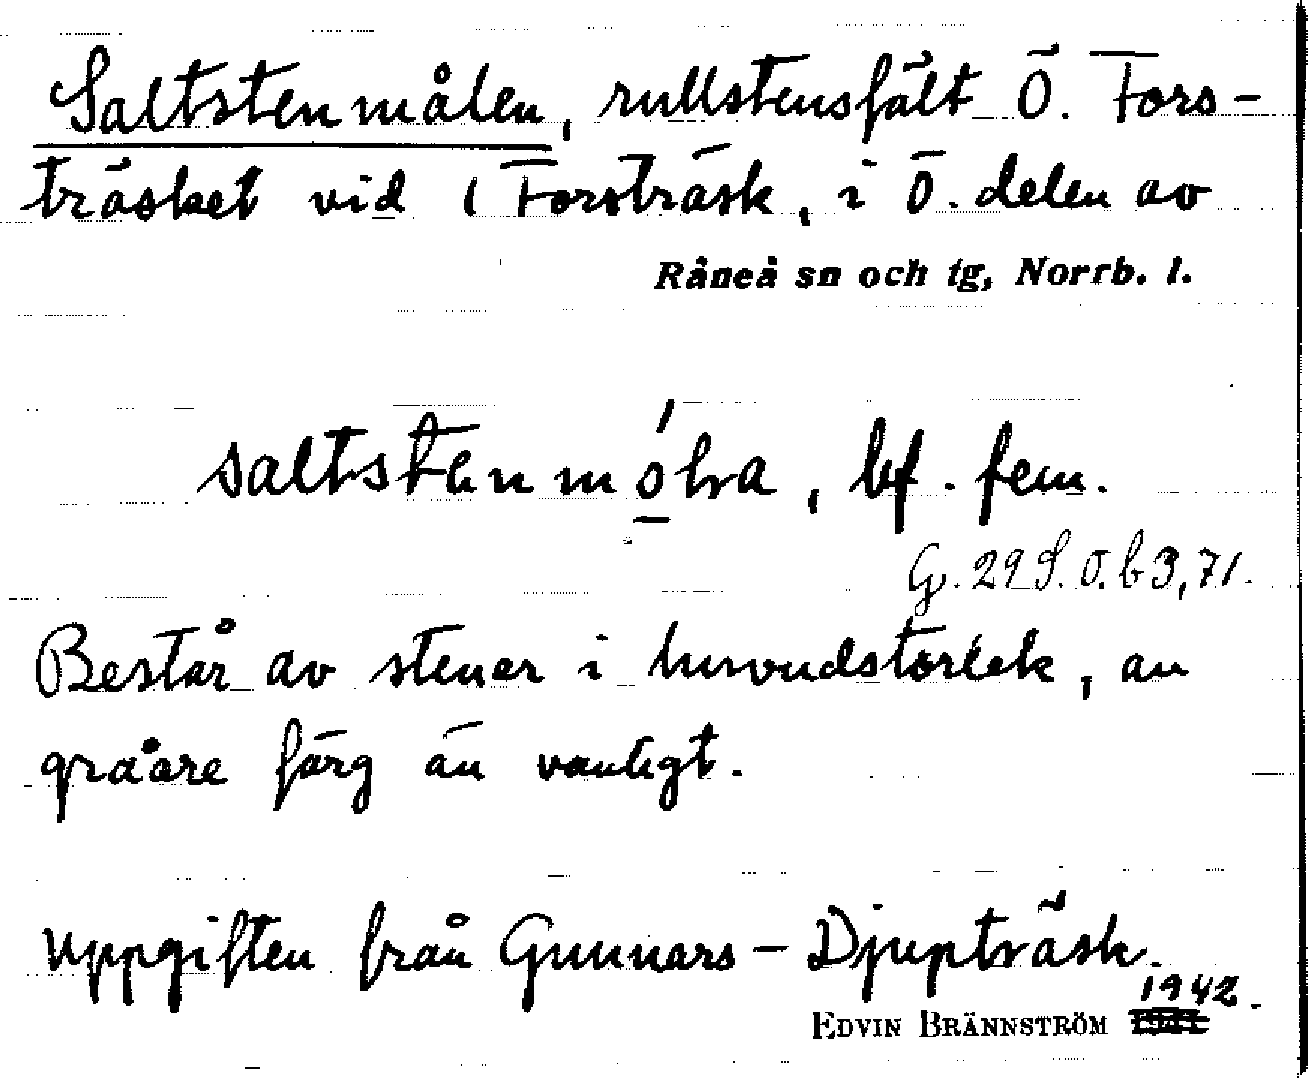 Saltstenmålen, rullstensfält Ö. Fors-
träsket vid ( Forsträsk, i Ö. delen av
Råneå sn och tg, Norrb. l.
saltstenmólra, bf. fem.
G. 29 S. Ö. b 3, 71.
Består av stenar i huvudstorlek, av
gråare färg än vanligt.
Uppgiften från Gunnars-Djupträsk.
1942.
EDVIN BRÄNNSTRÖM